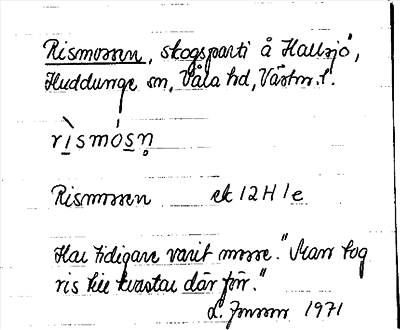 Rismossen, skogsparti å Hallsjö,
Huddunge sn, Våla hd, Västm. l.
rìsmósn̥
Rismossen ek 12H 1e
Har tidigare varit mosse. "Man tog
ris till kvastar där förr."
L. Jonsson 1971